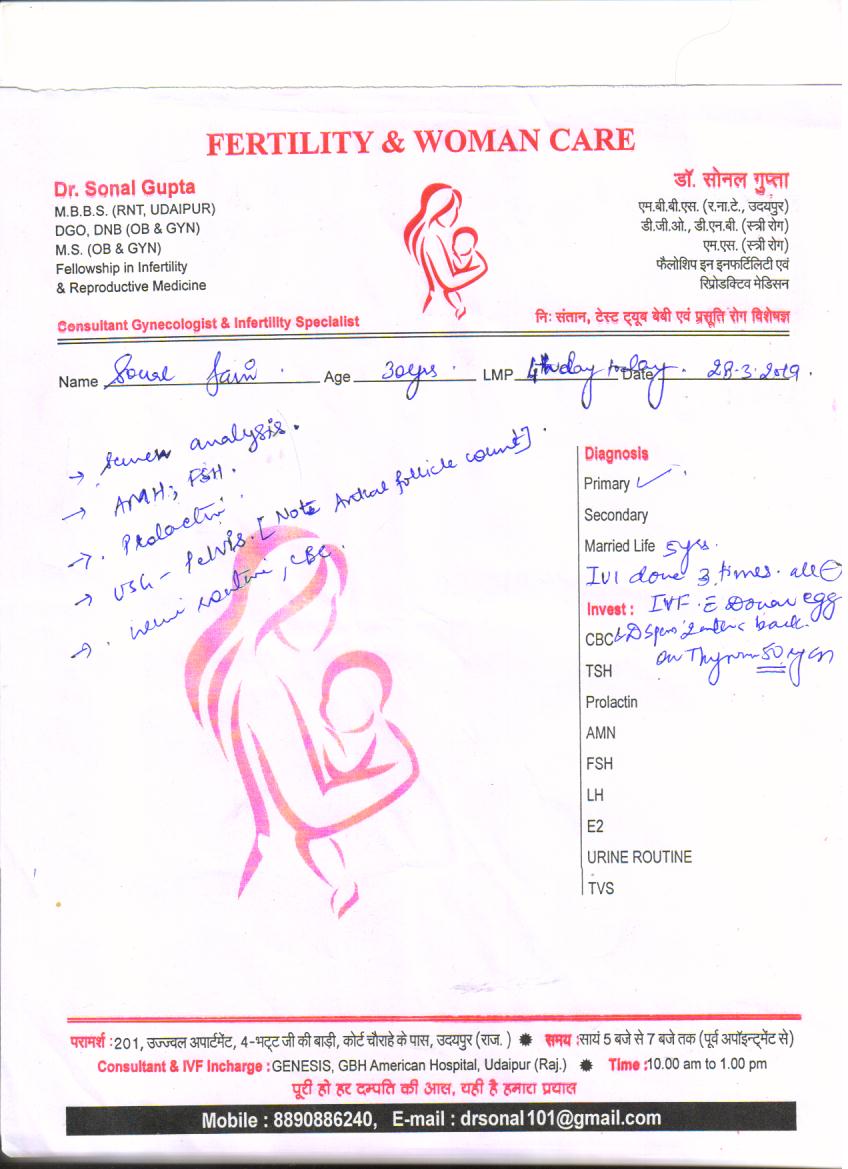 FERTILITY & WOMAN CARE
Dr. Sonal Gupta
M.B.B.S. (RNT, UDAIPUR)
DGO, DNB (OB & GYN)
M.S. (OB & GYN)
Fellowship in Infertility
& Reproductive Medicine
Consultant Gynecologist & Infertility Specialist
डॉ. सोनल गुप्ता
एम.बी.बी.एस. (र.ना.टे., उदयपुर)
डी.जी.ओ., डी.एन.बी. (स्त्री रोग)
एम.एस. (स्त्री रोग)
फैलोशिप इन इनफर्टिलिटी एवं
रिप्रोडक्टिव मेडिसन
निः संतान, टेस्ट ट्यूब बेबी एवं प्रसूति रोग विशेषज्ञ
Name Sonal Jain . Age 30yrs . LMP 4th day today . Date 28-3-2019 .
→ Semen analysis .
→ AMH ; FSH .
→ . Prolactin .
→ USG - Pelvis . [ Note Antral follicle count ] .
→ . Urine routine , CBC .
Diagnosis
Primary ✓
Secondary
Married Life 5yrs .
IUI done 3 times . all ⊖
Invest : IVF . Donor egg
CBC & D sperm back .
on 50
TSH
Prolactin
AMN
FSH
LH
E2
URINE ROUTINE
TVS
परामर्श : 201, उज्ज्वल अपार्टमेंट, 4-भट्ट जी की बाड़ी, कोर्ट चौराहे के पास, उदयपुर (राज. ) ✹ समय :सायं 5 बजे से 7 बजे तक (पूर्व अपॉइन्ट्मेंट से)
Consultant & IVF Incharge : GENESIS, GBH American Hospital, Udaipur (Raj.) ✹ Time :10.00 am to 1.00 pm
पूरी हो हर दम्पति की आस, यही है हमारा प्रयास
Mobile : 8890886240, E-mail : drsonal101@gmail.com